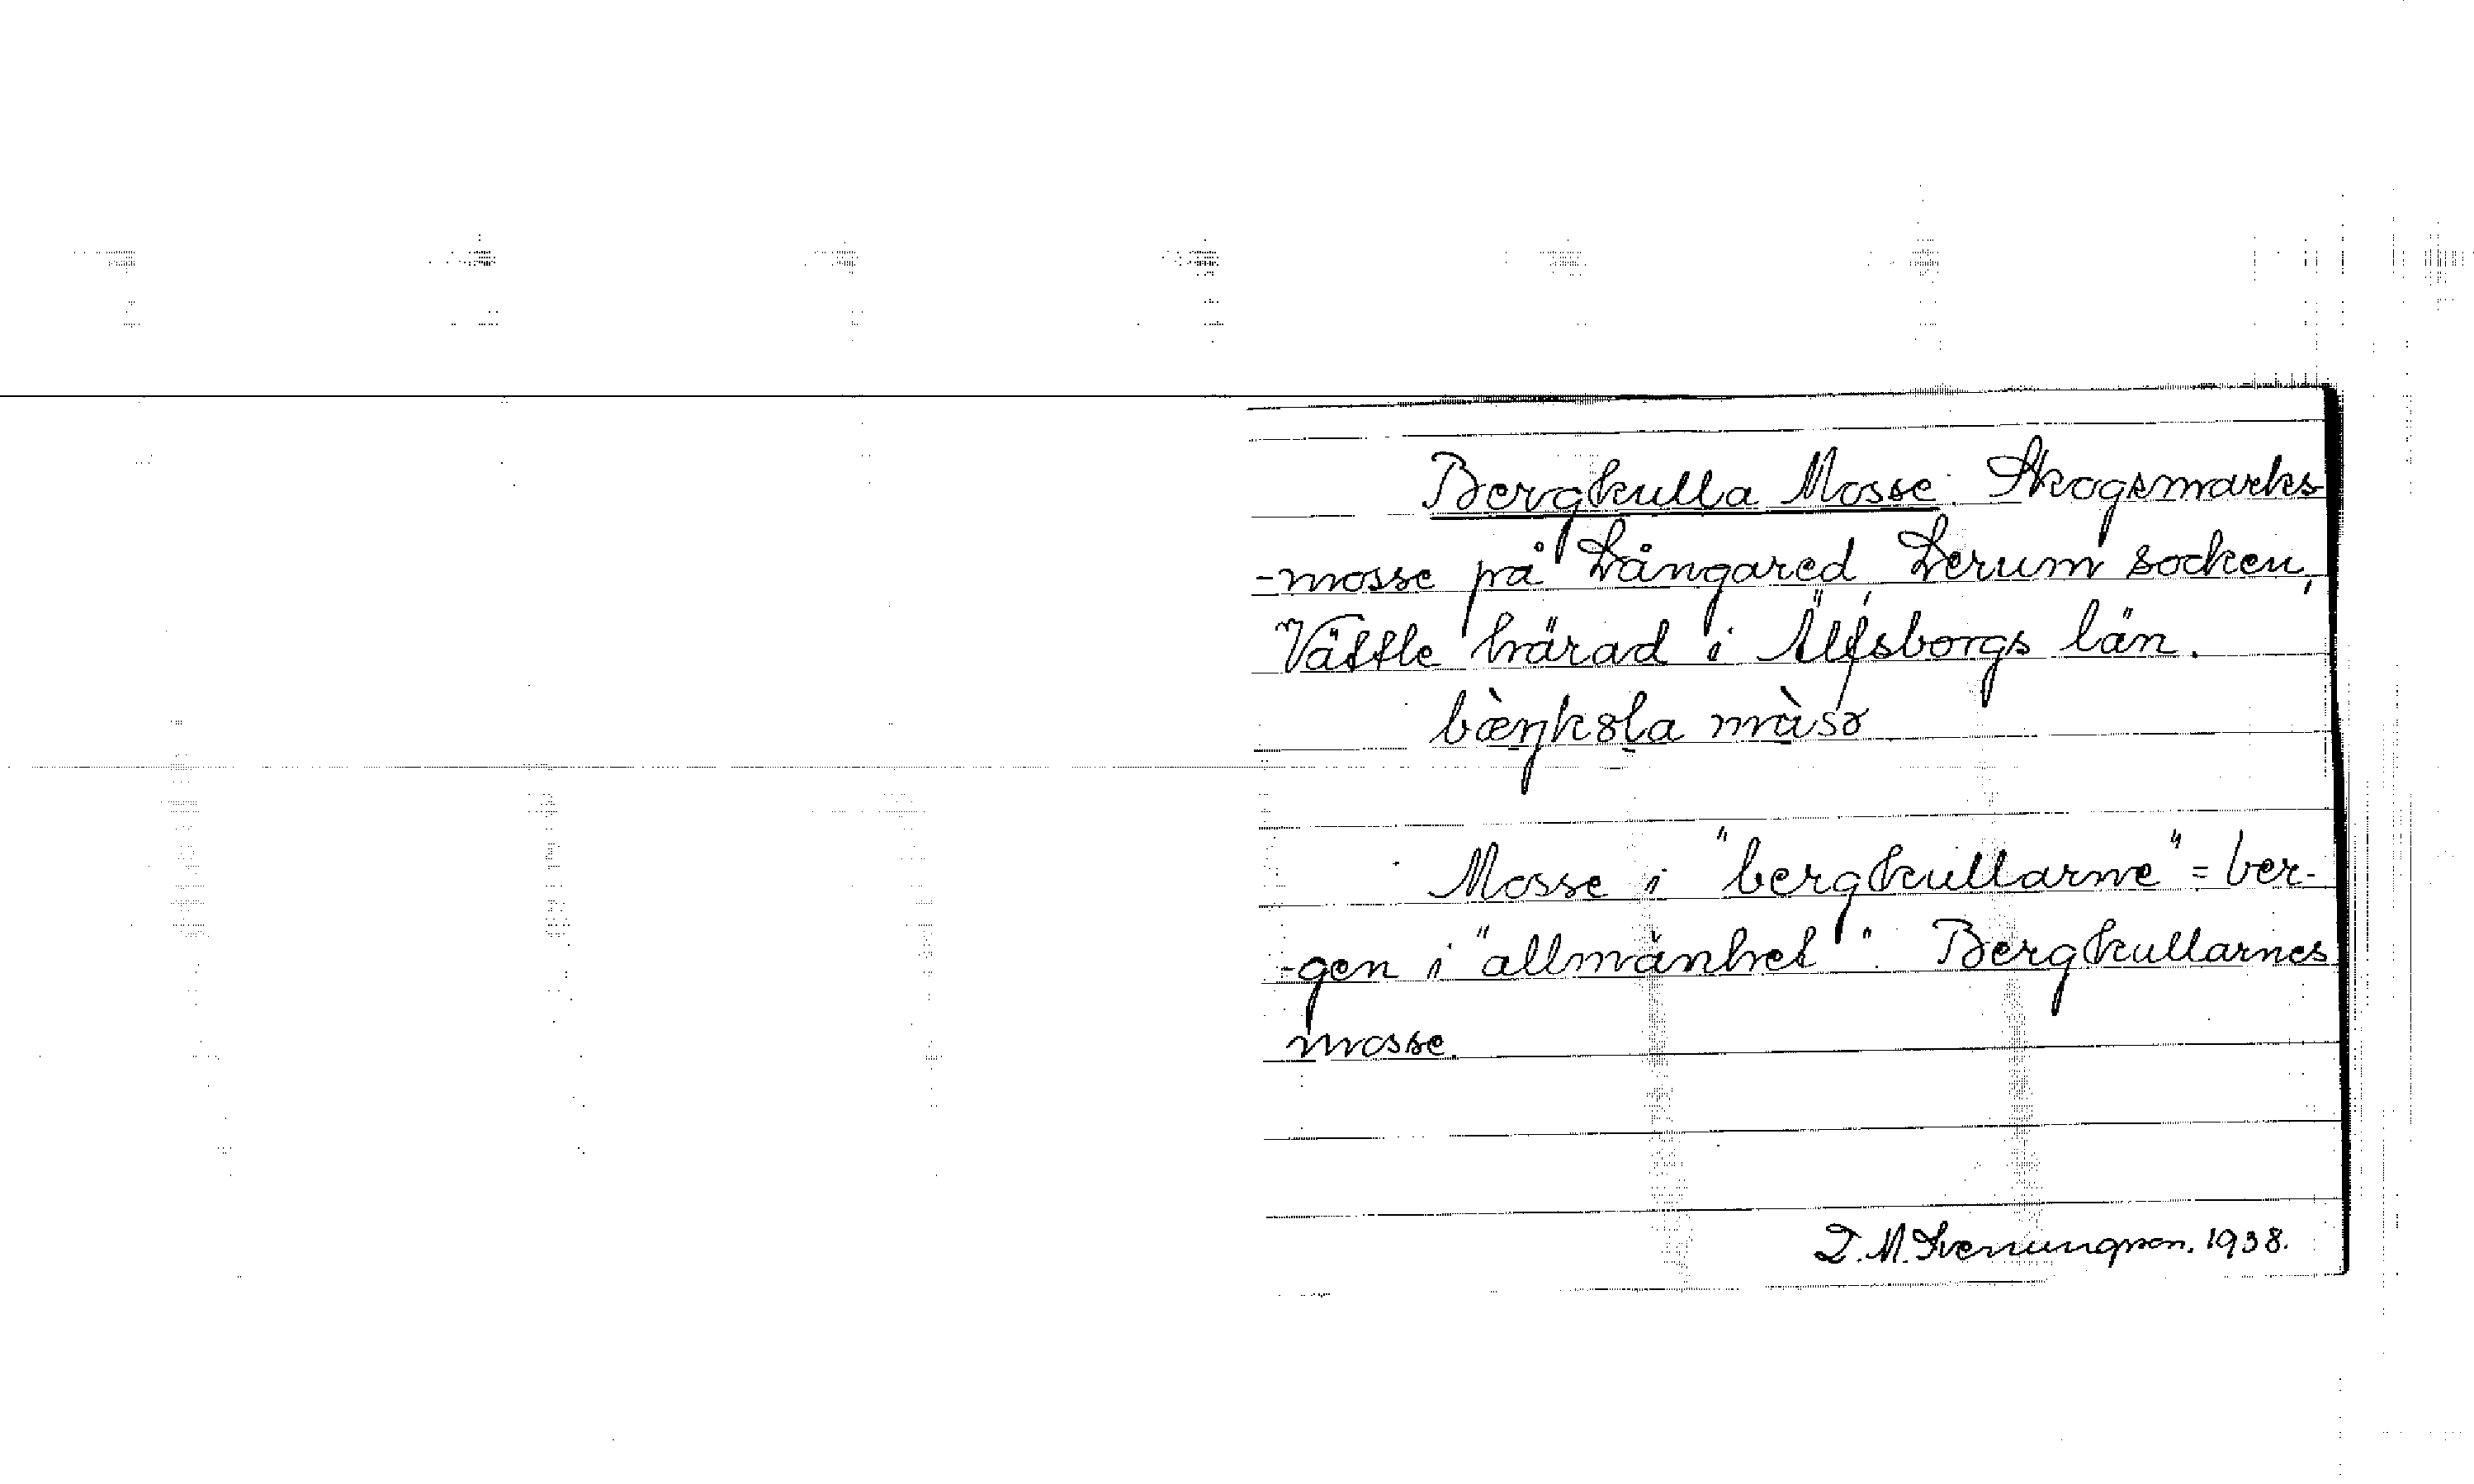 Bergkulla Mosse. Skogsmarks-
-mosse på Långared Lerum socken,
Vättle härad i Älfsborgs län.
bæ̀ŋkɞla màsɞ
Mosse i "bergkullarne" = ber-
-gen i "allmänhet". Bergkullarnes
mosse.
D. M. Svenungson. 1938.